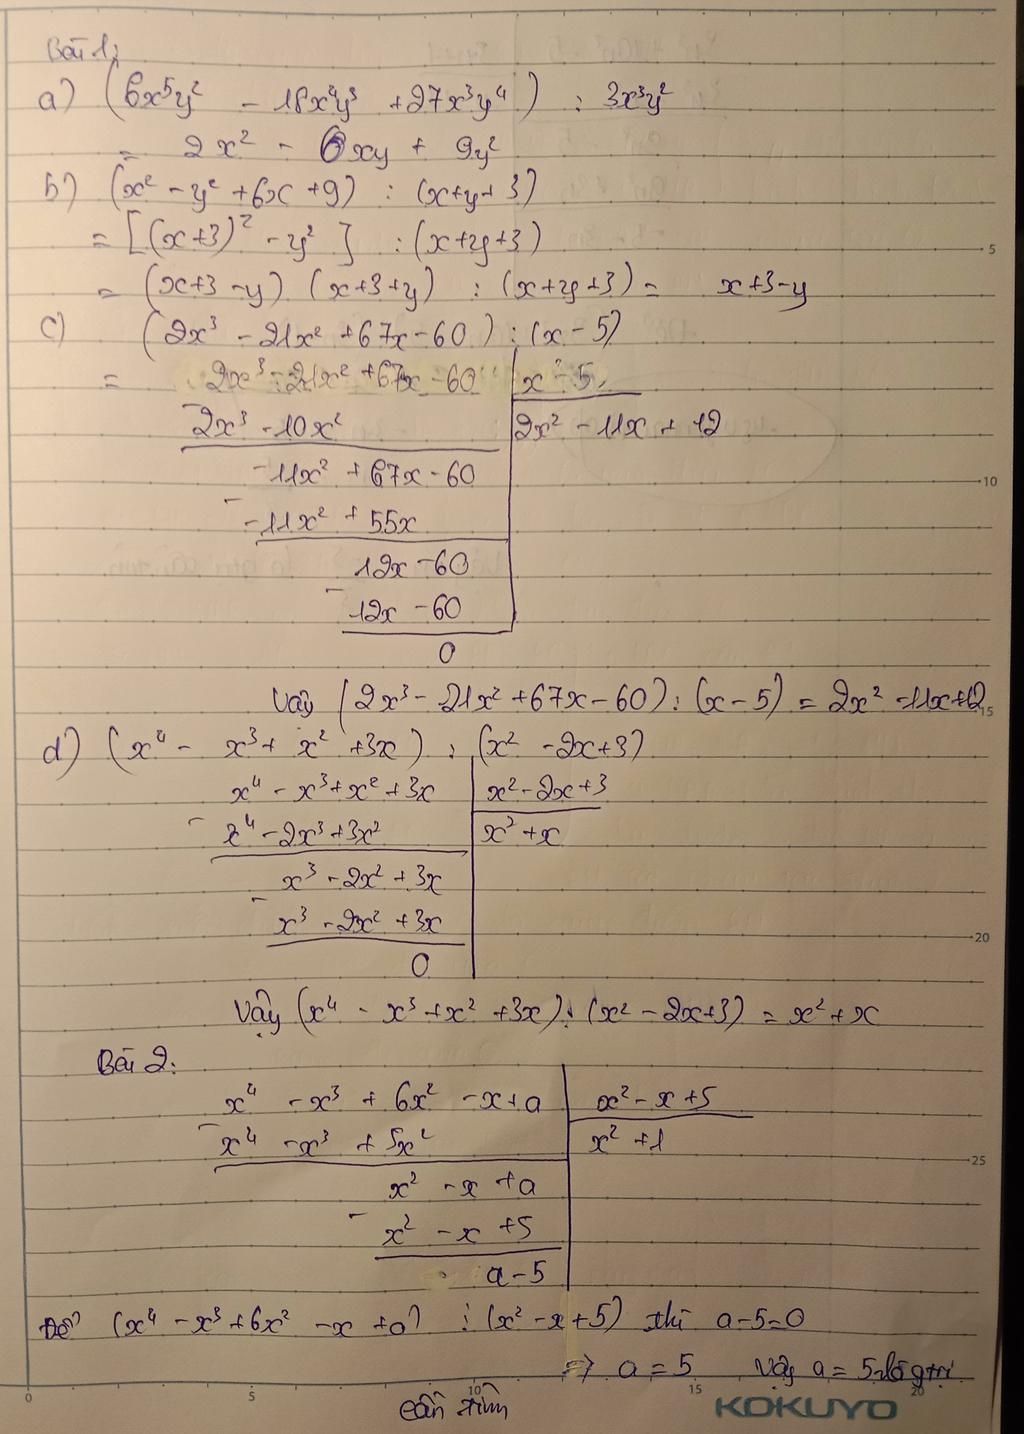 Bài 1:
a) (6x⁵y² - 18x⁴y³ + 27x³y⁴) : 3x³y²
= 2x² - 6xy + 9y²
b) (x² - y² + 6x + 9) : (x+y+3)
= [(x+3)² - y²] : (x+y+3)
= (x+3-y) (x+3+y) : (x+y+3) = x+3-y
c) (2x³ - 21x² + 67x - 60) : (x - 5)
= 2x³ - 21x² + 67x - 60 | x - 5
- 2x³ - 10x² | 2x² - 11x + 12
-11x² + 67x - 60
- -11x² + 55x
12x - 60
- 12x - 60
0
Vậy (2x³ - 21x² + 67x - 60) : (x - 5) = 2x² - 11x + 12
d) (x⁴ - x³ + x² + 3x) : (x² - 2x + 3)
x⁴ - x³ + x² + 3x | x² - 2x + 3
- x⁴ - 2x³ + 3x² | x² + x
x³ - 2x² + 3x
- x³ - 2x² + 3x
0
Vậy (x⁴ - x³ + x² + 3x) : (x² - 2x + 3) = x² + x
Bài 2:
x⁴ - x³ + 6x² - x + a | x² - x + 5
- x⁴ - x³ + 5x² | x² + 1
x² - x + a
- x² - x + 5
a - 5
Để (x⁴ - x³ + 6x² - x + a) ⋮ (x² - x + 5) thì a - 5 = 0
=> a = 5 Vậy a = 5 là g trị
cần tìm
5
10
15
20
25
0 5 10 15 20
KOKUYO